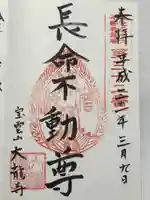 奉拝 平成二十一年三月九日
長命不動尊
宝雲山 大龍寺